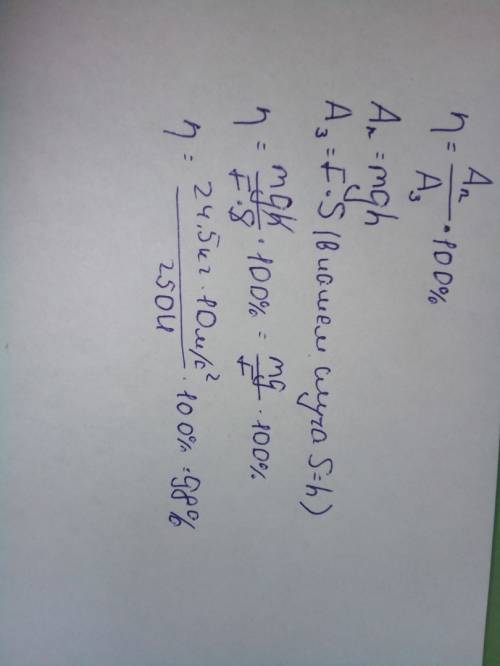 η = Aп / Aз · 100%
Aп = mgh
Aз = F · S (в нашем случа S = h)
η = mgh / F · S · 100% = mg / F · 100%
η = 24,5 кг · 10 м/с² / 250 Н · 100% = 98%